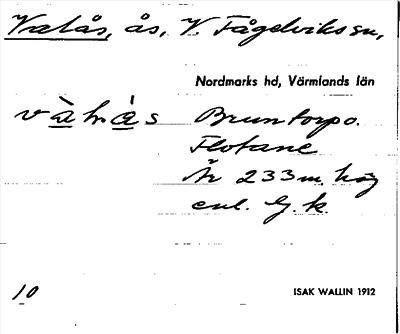 Valås, ås, V. Fågelviks sn,
Nordmarks hd, Värmlands län
Bruntorpo.
Flotane
Är 233 m. hög
enl. G. k.
10
ISAK WALLIN 1912